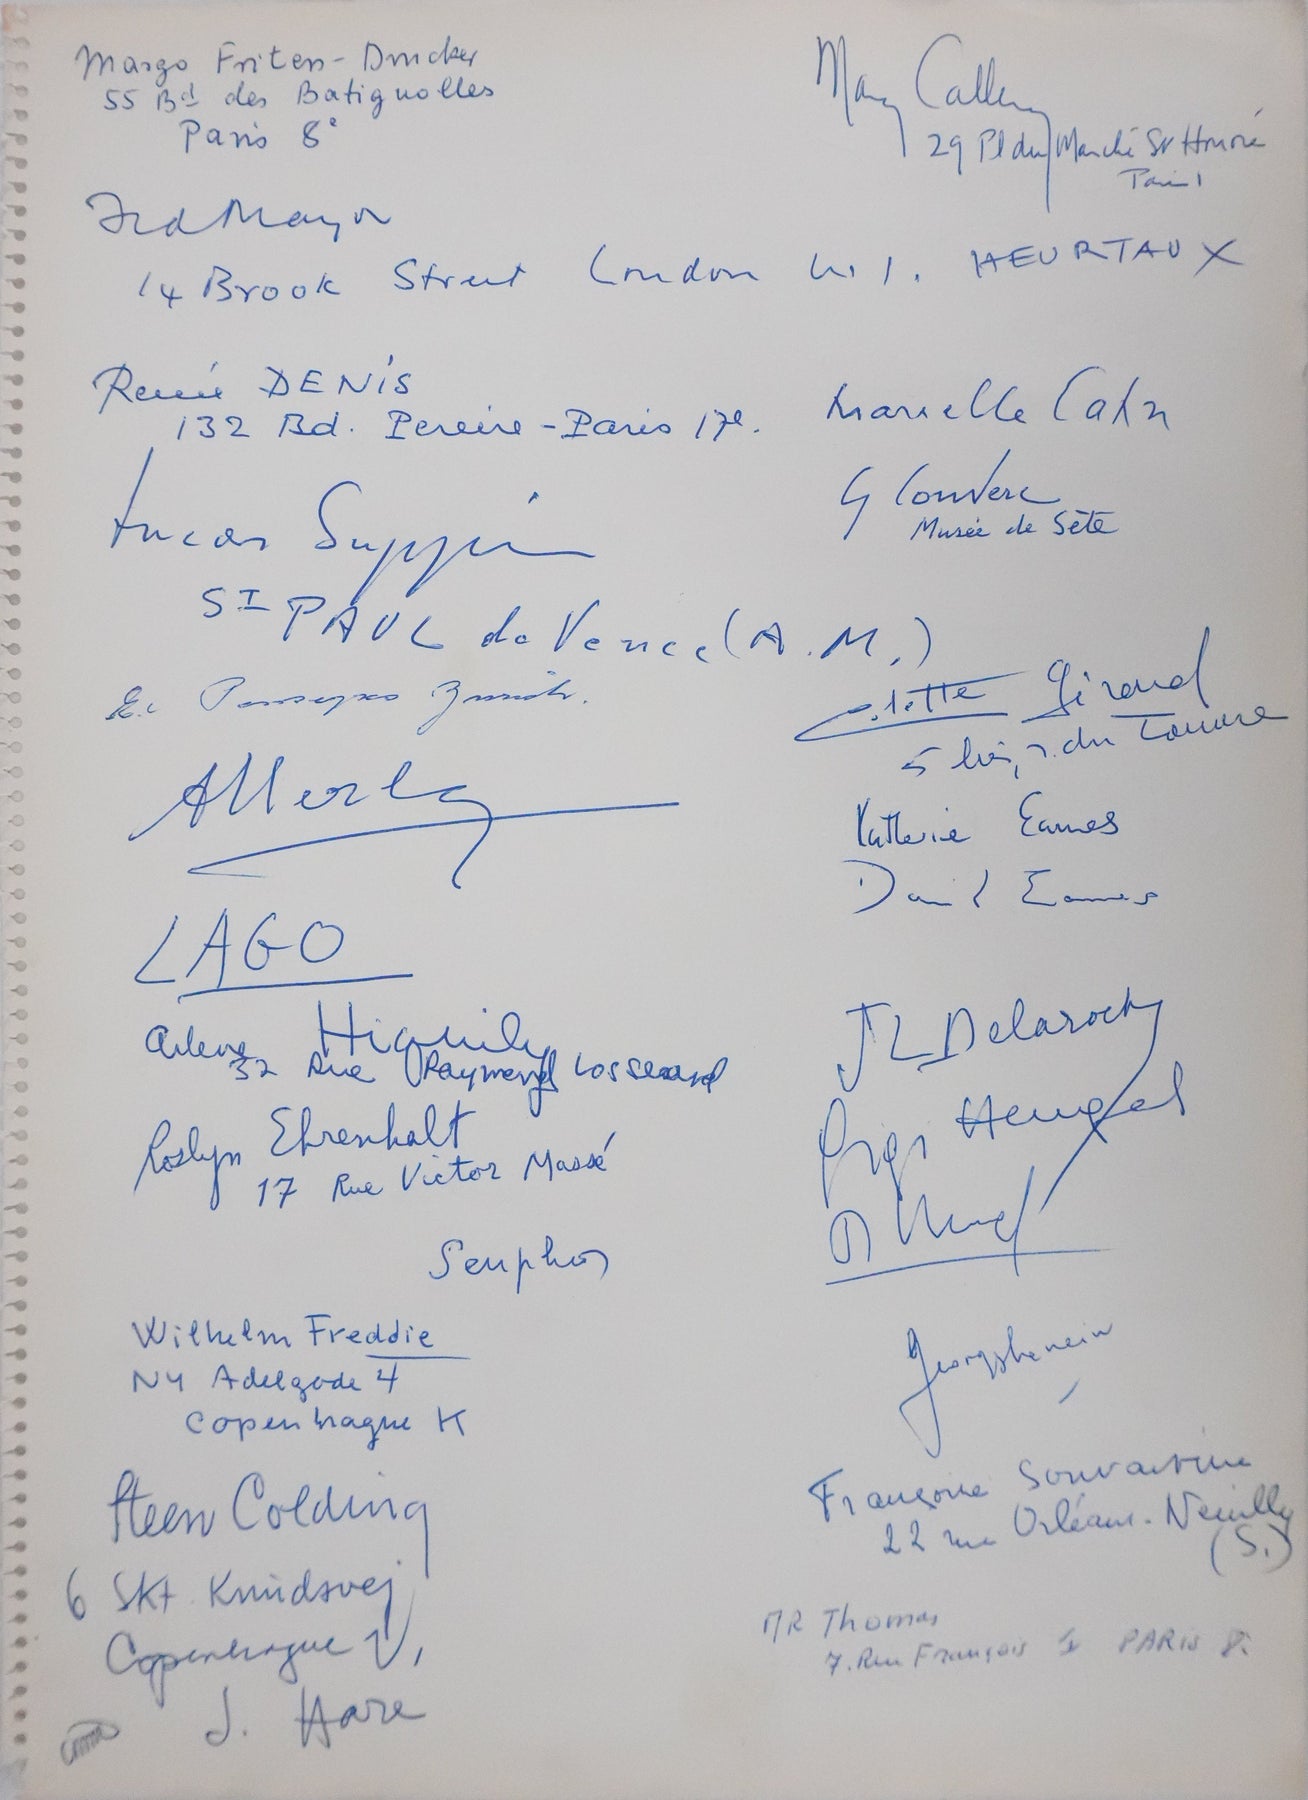 Margo Friten-Drucker
55 Bd des Batignolles
Paris 8e
Mary Callery
29 Pl du Marché St Honoré
Paris 1
Fred Mayor
14 Brook Street London W.1.
HEURTAUX
Renée DENIS
132 Bd. Pereire - Paris 17e.
Marcelle Cahn
G Couderc
Musée de Sète
Lucas Suppin
ST PAUL de Vence (A.M.)
Colette Giraud
5 bis, r. du Louvre
Katherine Eames
David Eames
LAGO
Arlene Hiquily
32 Rue Raymond Losserand
JL Delaroche
Roslyn Ehrenhalt
17 Rue Victor Massé
Gigi
Seuphor
Wilhelm Freddie
NY Adelgade 4
Copenhague K
Georges Henein
Steen Colding
6 Skt. Knudsvej
Copenhague V,
J. Hare
Françoise Souvarine
22 rue Orléans. Neuilly
(S.)
MR Thomas
7. Rue François 1 PARIS 8.